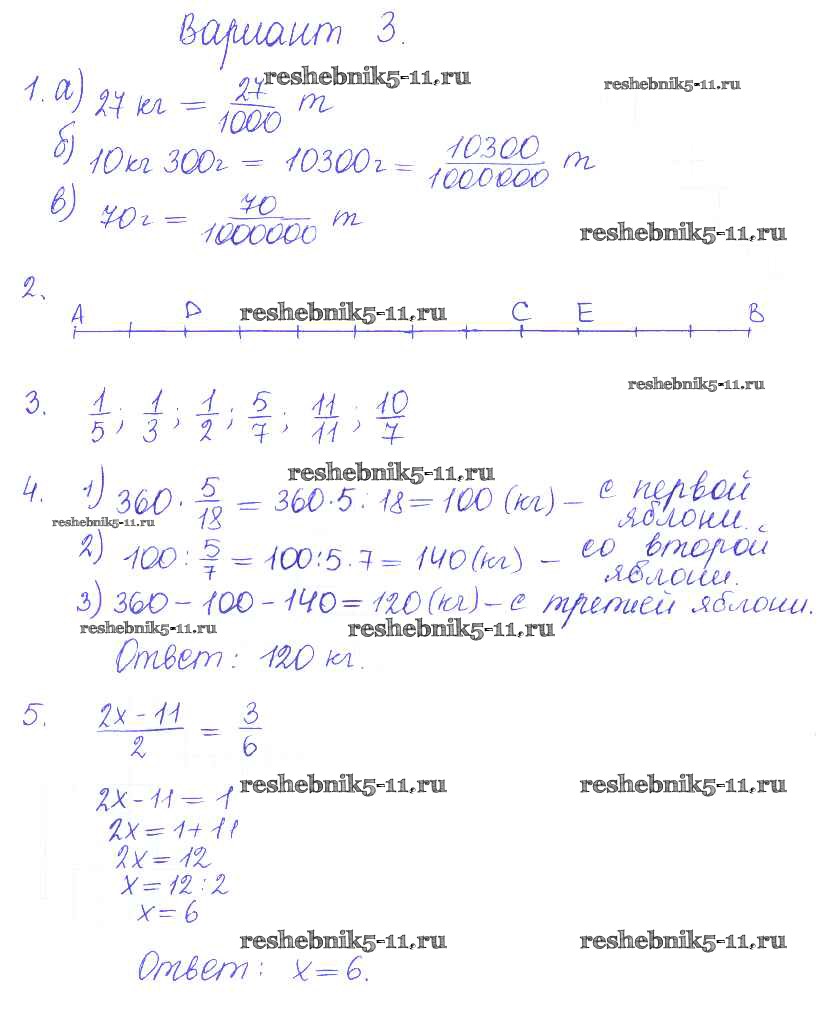 Вариант 3.
reshebnik5-11.ru reshebnik5-11.ru
1. а) 27 кг = 27/1000 т
б) 10кг 300г = 10300г = 10300/1000000 т
в) 70г = 70/1000000 т
reshebnik5-11.ru
2.
A D reshebnik5-11.ru C E B
reshebnik5-11.ru
3. 1/5; 1/3; 1/2; 5/7; 11/11; 10/7
reshebnik5-11.ru
4. 1) 360 · 5/18 = 360·5:18 = 100 (кг) – с первой
яблони.
reshebnik5-11.ru
2) 100 : 5/7 = 100:5·7 = 140 (кг) – со второй
яблони.
3) 360 – 100 – 140 = 120 (кг) – с третией яблони.
reshebnik5-11.ru reshebnik5-11.ru
Ответ: 120 кг.
5. (2x – 11)/2 = 3/6
reshebnik5-11.ru reshebnik5-11.ru
2x – 11 = 1
2x = 1 + 11
2x = 12
x = 12 : 2
x = 6
reshebnik5-11.ru reshebnik5-11.ru
Ответ: x = 6.